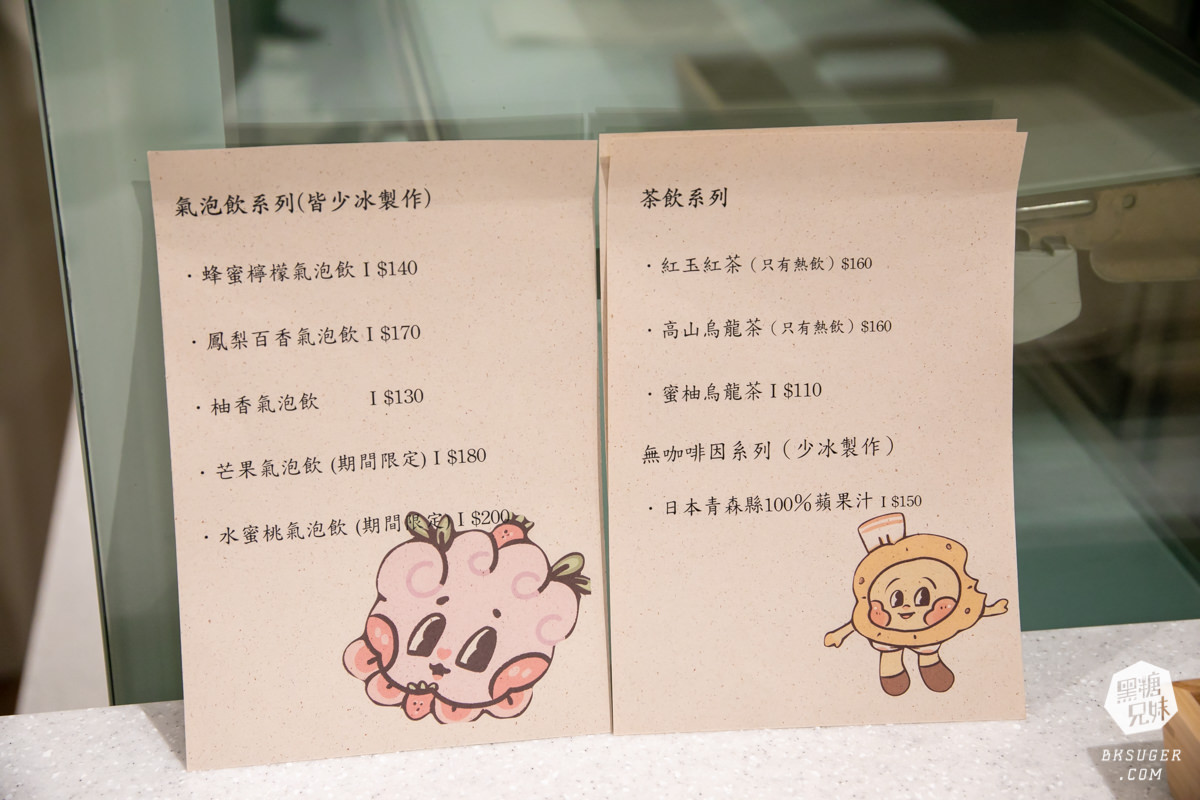 氣泡飲系列(皆少冰製作)
・蜂蜜檸檬氣泡飲 I $140
・鳳梨百香氣泡飲 I $170
・柚香氣泡飲 I $130
・芒果氣泡飲 (期間限定) I $180
・水蜜桃氣泡飲 (期間限定) I $200
茶飲系列
・紅玉紅茶（只有熱飲）$160
・高山烏龍茶（只有熱飲）$160
・蜜柚烏龍茶 I $110
無咖啡因系列（少冰製作）
・日本青森縣100%蘋果汁 I $150
黑糖
兄妹
BKSUGER
.COM